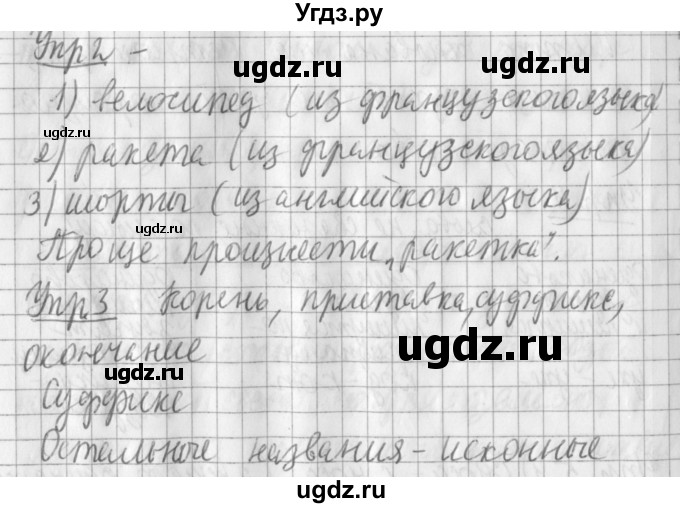 Угдз.ру
Упр 2 -
ugdz.ru ugdz.ru
1) велосипед (из французского языка)
ugdz.ru
2) ракета (из французского языка)
3) шорты (из английского языка)
ugdz.ru ugdz.ru
Проще произнести „ракетка".
Упр 3 Корень, приставка, суффикс,
ugdz.ru
окончание
ugdz.ru
Суффикс
Остальные названия - исконные
ugdz.ru